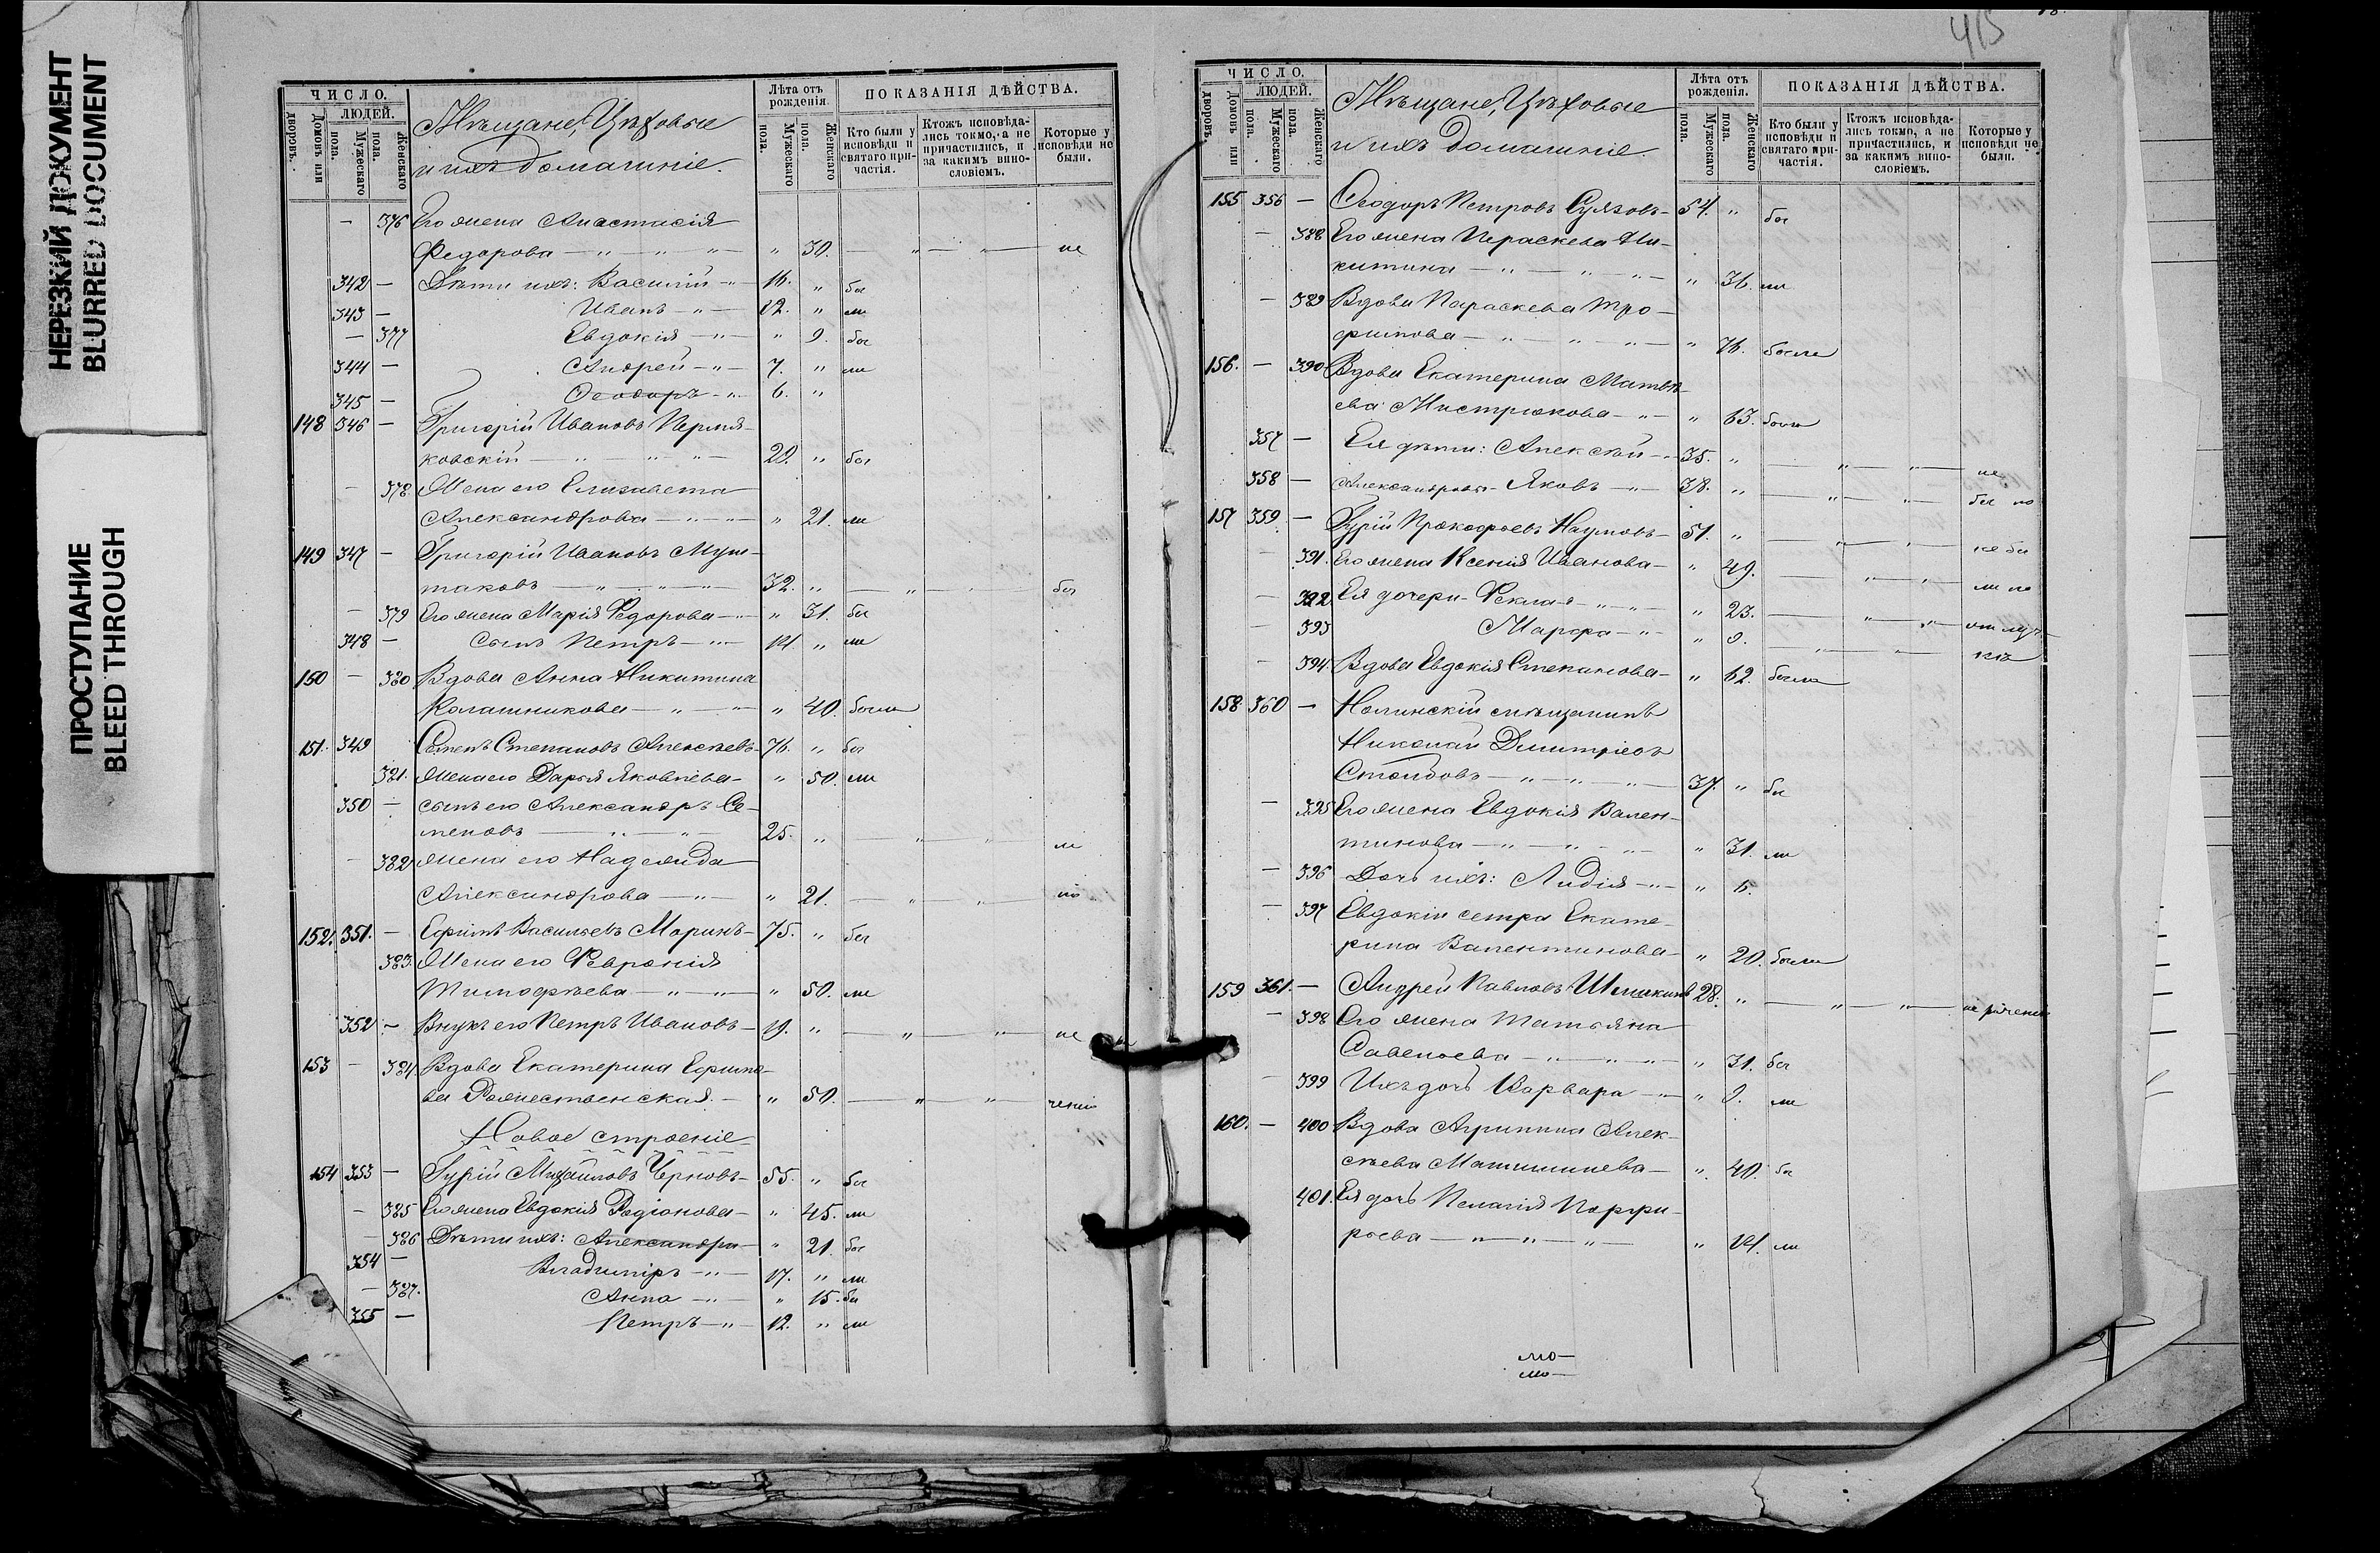 НЕРЕЗКИЙ ДОКУМЕНТ
BLURRED DOCUMENT
ПРОСТУПАНИЕ
BLEED THROUGH
ЧИСЛО.
ЛЮДЕЙ.
Домовъ или дворовъ.
Мужескаго пола.
Женскаго пола.
Мѣщане, Цѣховые
и ихъ домашніе.
Лѣта отъ рожденія.
Мужескаго пола.
Женскаго пола.
ПОКАЗАНІЯ ДѢЙСТВА.
Кто были у исповѣди и святаго причастія.
Ктожъ исповѣдались токмо, а не причастились, и за какимъ винословіемъ.
Которые у исповѣди не были.
— 376 Его жена Анастасія
Федорова — " — " — " 30. — " — " — не
342 — Дѣти ихъ: Василій — " 16. " бы
343 — Иванъ — " — 12. " ли
— 377 Евдокія — " — " 9. бы
344 — Андрей — " — 7. " ли
345 — Ѳеодоръ — " 6. "
148 346 — Григорій Ивановъ Пермя-
ковскій — " — " — " — 29. " бы
— 378. Жена его Елизавета
Александрова — " — " — " 21. ли
149 347 — Григорій Ивановъ Муш-
таковъ — " — " — " 32. " — " — бы
— 379 Его жена Марія Ѳедорова — " — " 31. бы
348 — Сынъ Петръ — " — 14. " ли
150 — 380 Вдова Анна Никитина
Калашникова — " — " — " 40. были
151. 349 Семенъ Степановъ Алексѣевъ — 76. " бы
381. Жена его Дарья Яковлева — " 50. ли
350 — сынъ его Александръ Се-
меновъ — " — " — 25. " — " — " — ли
— 382 жена его Надежда
Александрова — " — " 21. — " — " — но
152. 351. — Ефимъ Васильевъ Моринъ — 75. " бы
383. Жена его Ѳевронія
Тимофѣева — " — " — " 50. ли
352 — Внукъ его Петръ Ивановъ — 19. " — " — " — не
153 — 384 Вдова Екатерина Ефимо-
ва Рожественская. — " 50. — " — " —
Новое строеніе
154 353 — Гурій Михайловъ Черновъ — 55. " бы
— 385 Его жена Евдокія Родіонова — " 45. ли
— 386 Дѣти ихъ: Александра — " 21. бы
354 — Владиміръ — " — 17. " ли
— 387. Анна — " — " 15. бы
355 — Петръ — " — 12. " ли
415
ЧИСЛО.
ЛЮДЕЙ.
Домовъ или дворовъ.
Мужескаго пола.
Женскаго пола.
Мѣщане, Цѣховые
и ихъ домашніе.
Лѣта отъ рожденія.
Мужескаго пола.
Женскаго пола.
ПОКАЗАНІЯ ДѢЙСТВА.
Кто были у исповѣди и святаго причастія.
Ктожъ исповѣдались токмо, а не причастились, и за какимъ винословіемъ.
Которые у исповѣди не были.
155 356 — Ѳеодоръ Петровъ — 54. " бы
— 388 Его жена Параскева Ни-
китина — " — " — " — " 36. ли
— 389 Вдова Параскева Тро-
фимова — " — " — " — " 76. были
156. — 390 Вдова Екатерина Матвѣ-
ева Мистрюкова — " — " 63. были
357 — Ея дѣти: Алексѣй — 35. " — " — " — не
358 — Александровы Яковъ — " — 38. " — " — " — бы но
157 359 — Гурій Прокофьевъ Наумовъ — 51. " — " — " — не бы
— 391. Его жена Ксенія Иванова — " 49. — " — " — ли по
— 392 Ея дочери — Ѳекла — " — " — " 23. — " — " — отлуч-
— 393 Марфа — " — " 9. — " — " — кѣ
— 394 Вдова Евдокія Степанова — " 62. были
158 360 — Нолинскій мѣщанинъ
Николай Димитріевъ
— " — " — " — 37. " бы
— 395 Его жена Евдокія Вален-
тинова — " — " — " — " 31. ли
— 396 Дочь ихъ: Лидія — " — " 6.
— 397 Евдокіи сестра Екате-
рина Валентинова — " 20. были
159 361. — Андрей Павловъ 28. " — " — " —
— 398 Его жена Татьяна
Савельева — " — " — " — " 31. бы
— 399 Ихъ дочь Варвара — " — " 9. ли
160. — 400 Вдова Агрипина Алек-
сѣева — " 40. бы
401. Ея дочь Пелагія Порфи-
рьева — " — " — " — " 14. ли